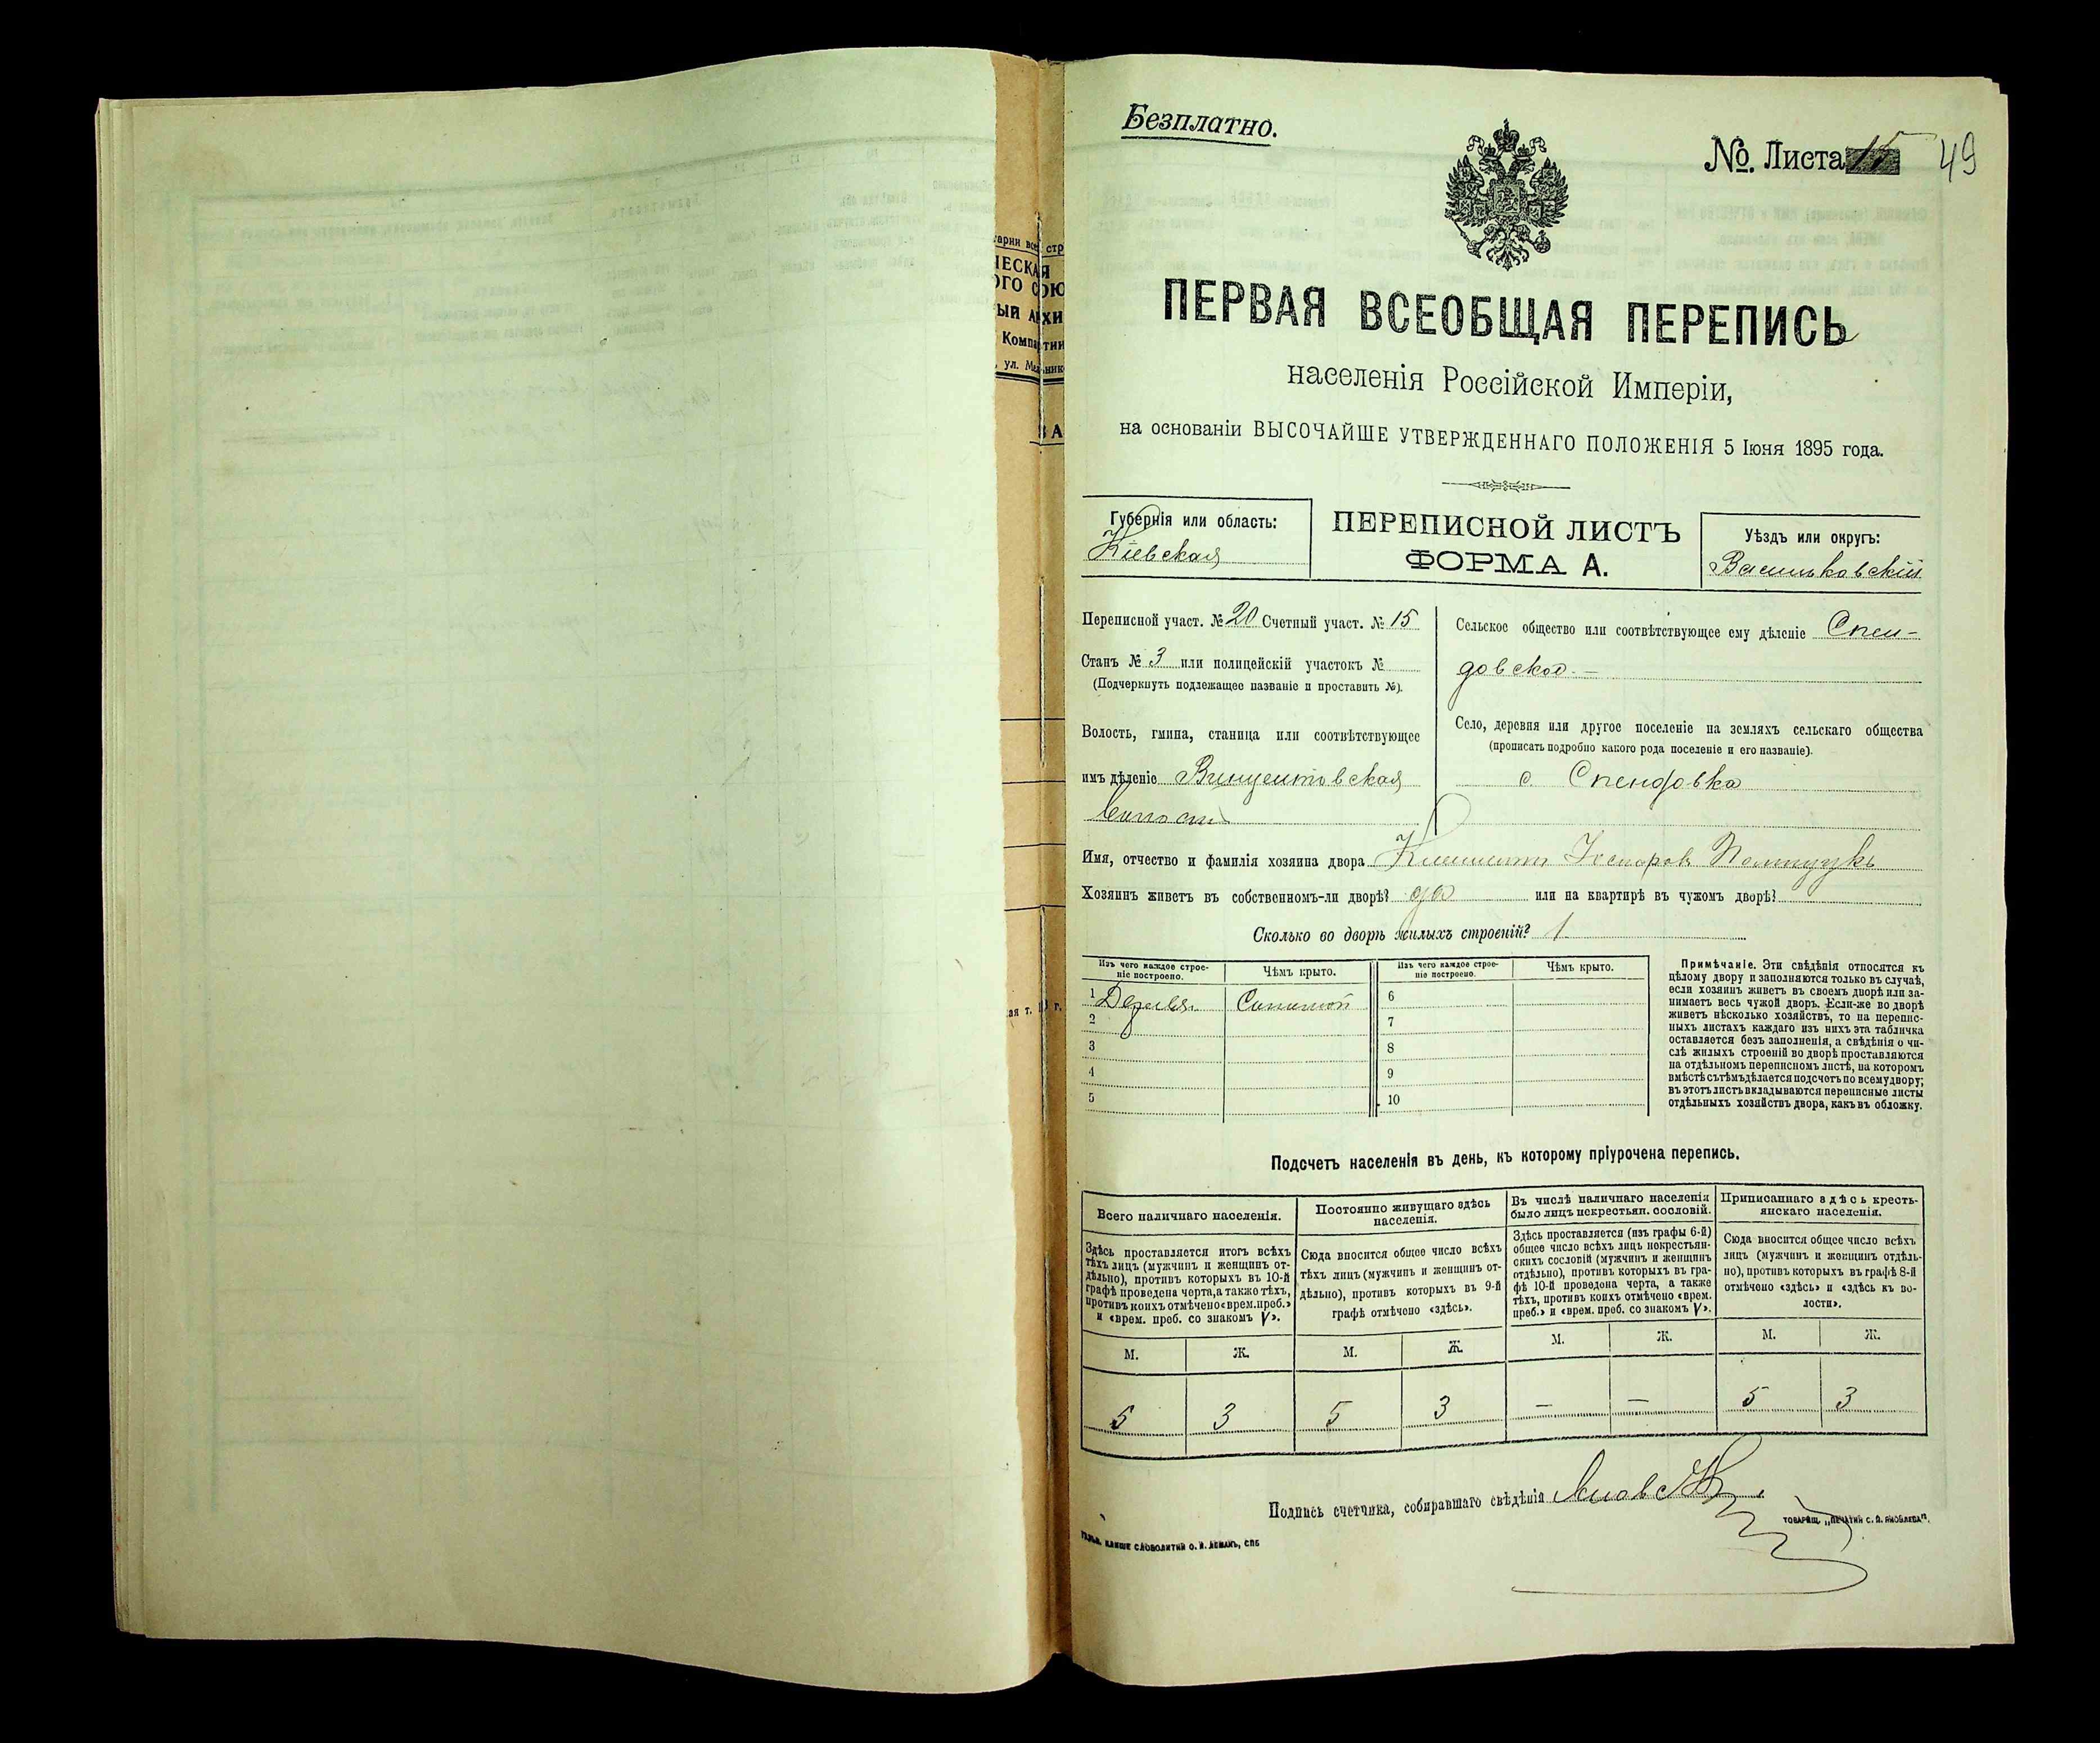 Безплатно.
№ Листа 15
49
ПЕРВАЯ ВСЕОБЩАЯ ПЕРЕПИСЬ
населенія Россійской Имперіи,
на основаніи ВЫСОЧАЙШЕ УТВЕРЖДЕННАГО ПОЛОЖЕНІЯ 5 Іюня 1895 года.
Губернія или область:
Кіевская
ПЕРЕПИСНОЙ ЛИСТЪ
ФОРМА А.
Уѣздъ или округъ:
Васильковскій
Переписной участ. № 20 Счетный участ. № 15
Станъ № 3 или полицейскій участокъ №
(Подчеркнуть подлежащее названіе и проставить №).
Волость, гмина, станица или соотвѣтствующее
имъ дѣленіе Винцентовская
Сельское общество или соотвѣтствующее ему дѣленіе Спен-
довское
Село, деревня или другое поселеніе на земляхъ сельскаго общества
(прописать подробно какого рода поселеніе и его названіе).
с. Спендовка
Имя, отчество и фамилія хозяина двора
Хозяинъ живетъ въ собственномъ-ли дворѣ? да или на квартирѣ въ чужомъ дворѣ?
Сколько во дворѣ жилыхъ строеній? 1
Изъ чего каждое строе-
ніе построено.
Чѣмъ крыто.
Изъ чего каждое строе-
ніе построено.
Чѣмъ крыто.
1 Дерев. Соломой
2
3
4
5
6
7
8
9
10
Примѣчаніе. Эти свѣдѣнія относятся къ
цѣлому двору и заполняются только въ случаѣ,
если хозяинъ живетъ въ своемъ дворѣ или за-
нимаетъ весь чужой дворъ. Если-же во дворѣ
живетъ нѣсколько хозяйствъ, то на перепис-
ныхъ листахъ каждаго изъ нихъ эта табличка
оставляется безъ заполненія, а свѣдѣнія о чи-
слѣ жилыхъ строеній во дворѣ проставляются
на отдѣльномъ переписномъ листѣ, на которомъ
вмѣстѣ съ тѣмъ дѣлается подсчетъ по всему двору;
въ этотъ листъ вкладываются переписные листы
отдѣльныхъ хозяйствъ двора, какъ въ обложку.
Подсчетъ населенія въ день, къ которому пріурочена перепись.
Всего наличнаго населенія.
Здѣсь проставляется итогъ всѣхъ
тѣхъ лицъ (мужчинъ и женщинъ от-
дѣльно), противъ которыхъ въ 10-й
графѣ проведена черта, а также тѣхъ,
противъ коихъ отмѣчено «врем. преб.»
и «врем. преб. со знакомъ V».
Постоянно живущаго здѣсь
населенія.
Сюда вносится общее число всѣхъ
тѣхъ лицъ (мужчинъ и женщинъ от-
дѣльно), противъ которыхъ въ 9-й
графѣ отмѣчено «здѣсь».
Въ числѣ наличнаго населенія
было лицъ некрестьян. сословій.
Здѣсь проставляется (изъ графы 6-й)
общее число всѣхъ лицъ некрестьян-
скихъ сословій (мужчинъ и женщинъ
отдѣльно), противъ которыхъ въ гра-
фѣ 10-й проведена черта, а также
тѣхъ, противъ коихъ отмѣчено «врем.
преб.» и «врем. преб. со знакомъ V».
Приписаннаго здѣсь кресть-
янскаго населенія.
Сюда вносится общее число всѣхъ
лицъ (мужчинъ и женщинъ отдѣль-
но), противъ которыхъ въ графѣ 8-й
отмѣчено «здѣсь» и «здѣсь къ во-
лости».
М. Ж. М. Ж. М. Ж. М. Ж.
5 3 5 3 — — 5 3
Подпись счетчика, собиравшаго свѣдѣнія
ТОВАРИЩ. „ПЕЧАТНИ С. П. ЯКОВЛЕВА".
КЛИШЕ СЛОВОЛИТНИ О. И. ЛЕМАНЪ, СПБ